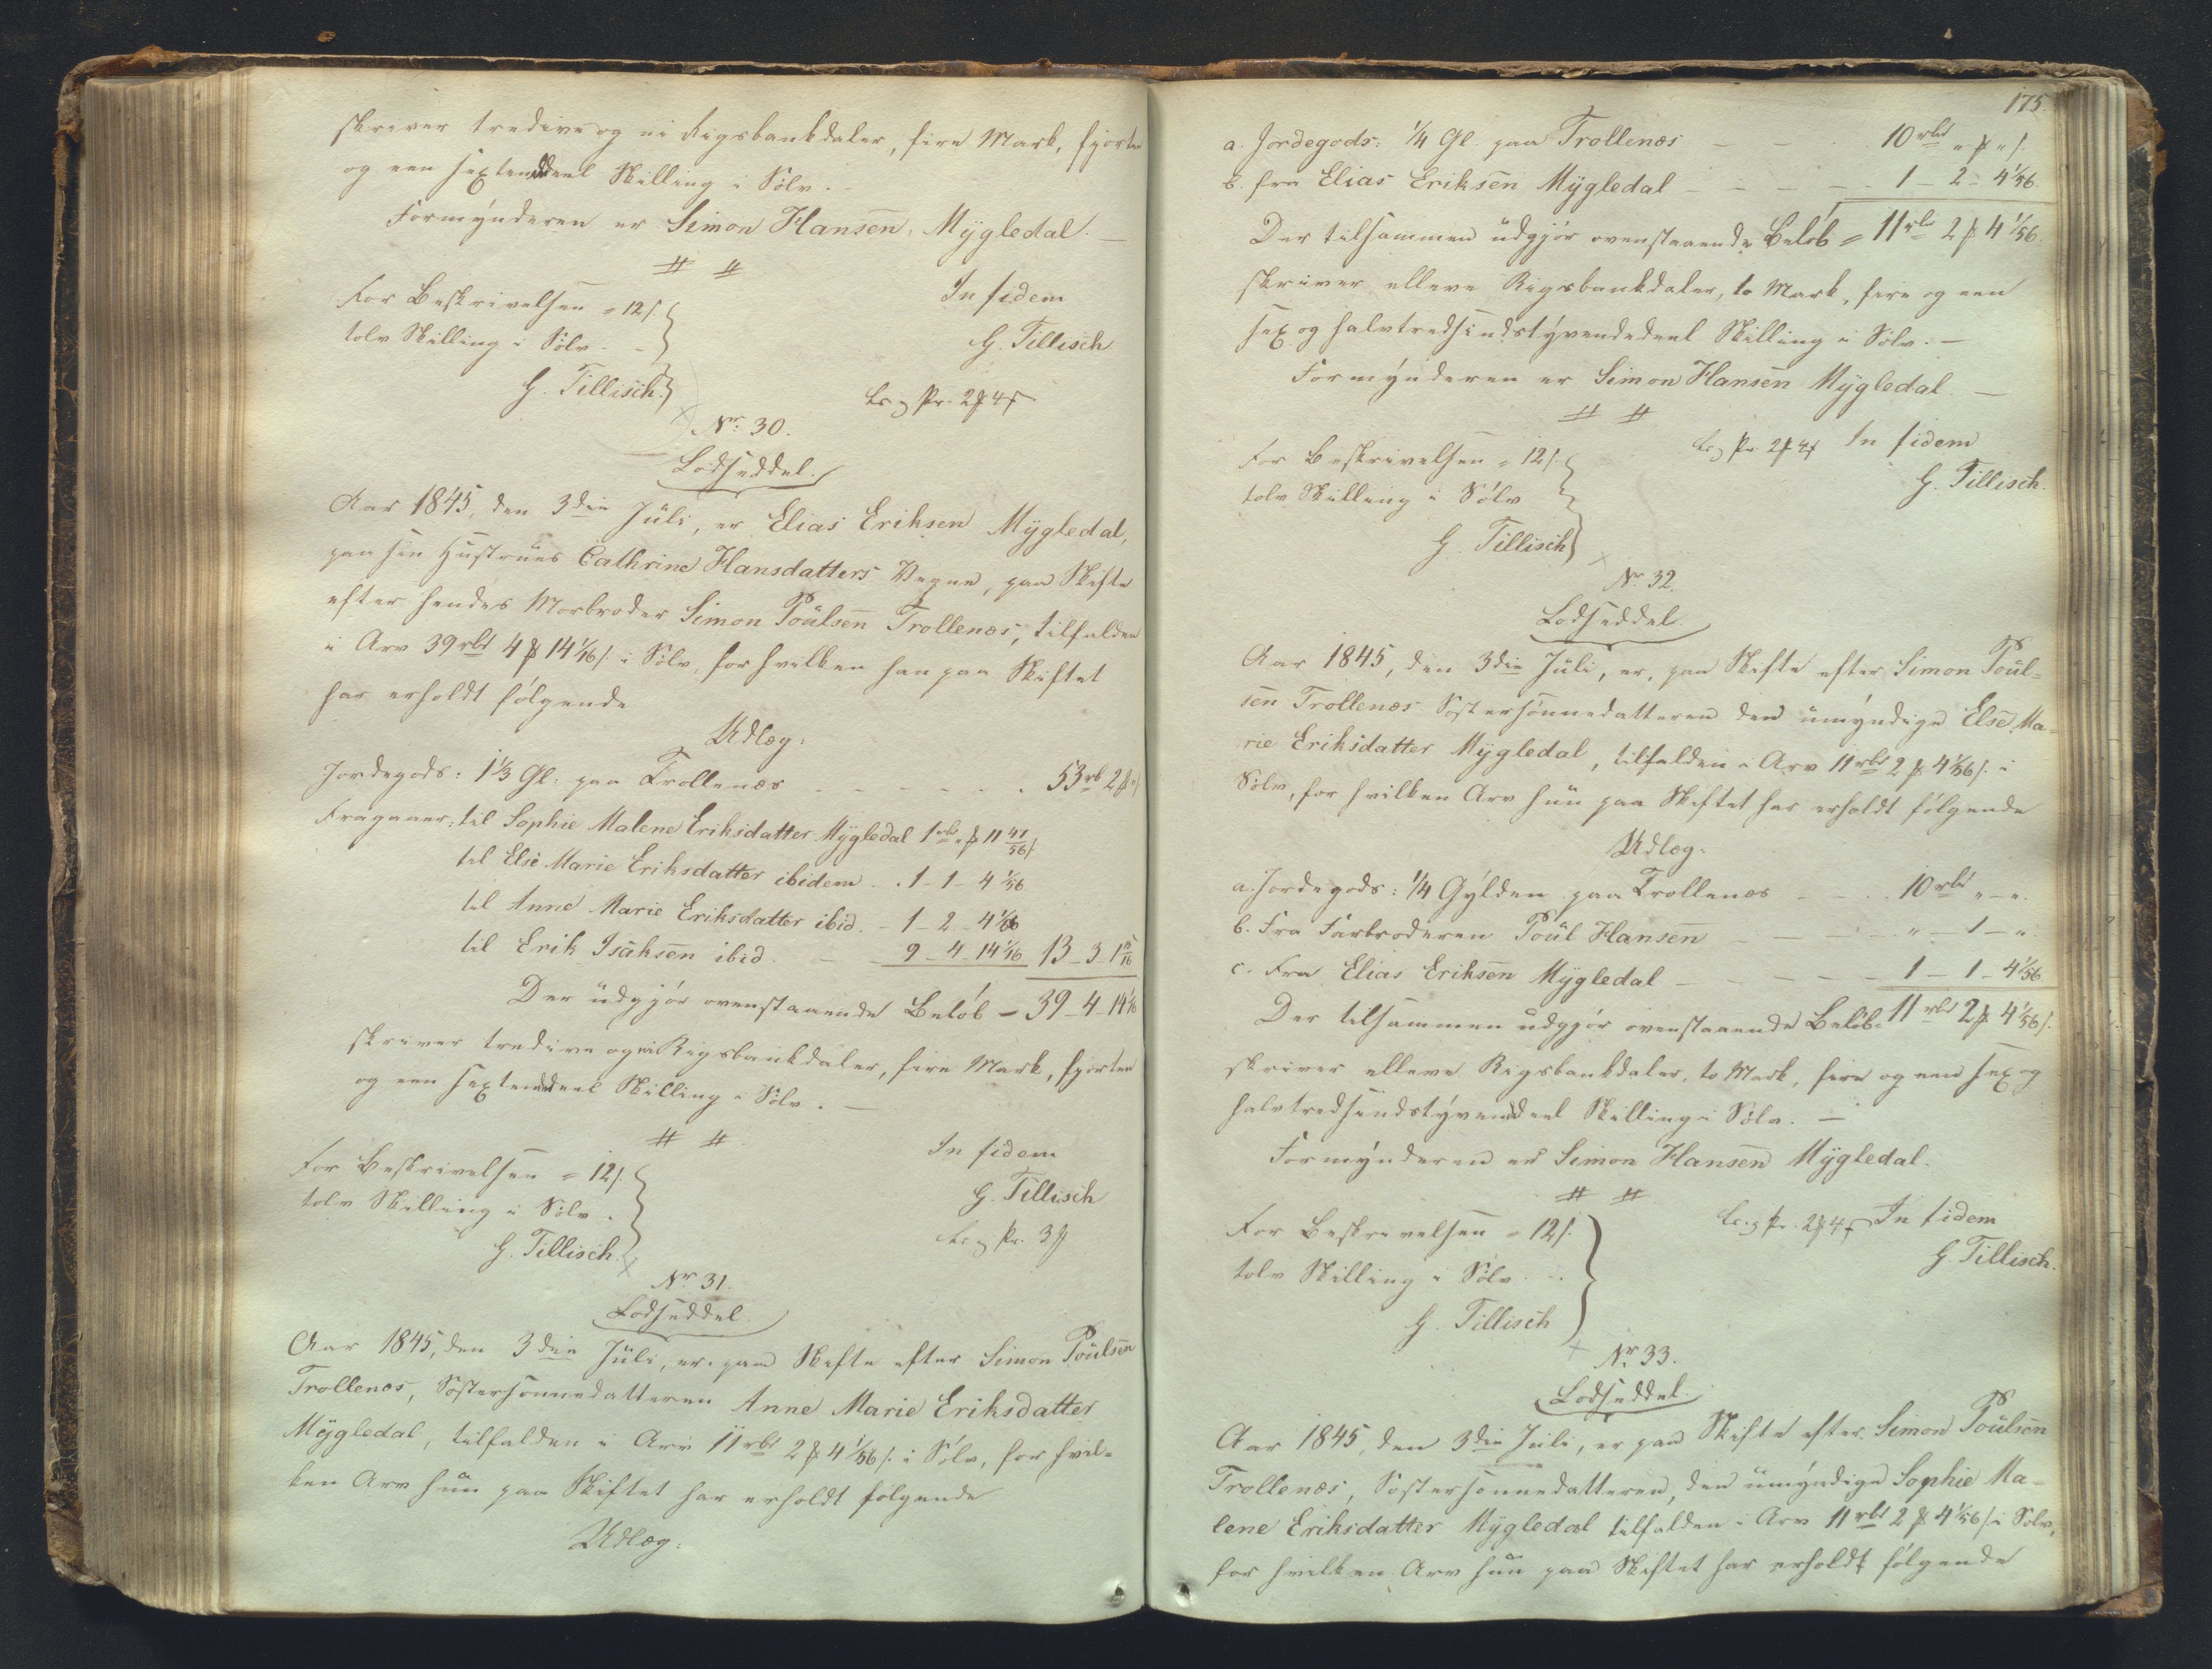 skriver tredive og ni Rigsbankdaler, fire Mark, fjorten
og een sextendedeel Skilling i Sølv.
Formÿnderen er Simon Hansen, Mÿgledal. —
# #
For Beskrivelsen = 12 s.
tolv Skilling i Sølv -
G. Tillisch.
In fidem
G. Tillisch
Ls. og Pr. 2 ℳ 4 s
Nr. 30.
Lodseddel.
Aar 1845, den 3die Jüli, er Elias Eriksen Mÿgledal,
paa sin Hustrues Cathrine Hansdatters Vegne, paa Skifte
efter hendes Morbroder Simon Poülsen Trollenæs, tilfalden
i Arv 39 rbd 4 ℳ 14 1/16 s. i Sølv, for hvilken han paa Skiftet
har erholdt følgende
Udlæg:
Jordegods: 1 1/3 Gl. paa Trollenæs - - - - - 53 rb 2 ℳ " s
Fragaaer: til Sophie Malene Eriksdatter Mÿgledal 1 rbd " ℳ 11 41/56 s
til Else Marie Eriksdatter ibidem - . 1 - 1 - 4 1/56
til Anne Marie Eriksdatter ibid. - 1 - 2 - 4 1/56
til Erik Isaksen ibid. - - 9 - 4 - 14 1/16 13 - 3 - 1 15/16
Der üdgjør ovenstaaende Beløb = 39 - 4 - 14 1/16
skriver tredive og ni Rigsbankdaler, fire Mark, fjorten
og een sextendedeel Skilling i Sølv. —
# #
For Beskrivelsen = 12 s.
tolv Skilling i Sølv.
G. Tillisch.
In fidem
G. Tillisch
Ls. og Pr. 3 ℳ
Nr. 31.
Lodseddel.
Aar 1845, den 3die Jüli, er, paa Skifte efter Simon Poülsen
Trollenæs, Søstersønnedatteren Anne Marie Eriksdatter
Mÿgledal, tilfalden i Arv 11 rbd 2 ℳ 4 1/56 s. i Sølv, for hvil=
ken Arv hün paa Skiftet har erholdt følgende
Udlæg:
175.
a. Jordegods: 1/4 Gl. paa Trollenæs - - . 10 rbd " ℳ " s.
b. fra Elias Eriksen Mÿgledal - - - - - 1 - 2 - 4 1/56.
Der tilsammen üdgjør ovenstaaende Beløb = 11 rbd 2 ℳ 4 1/56.
skriver elleve Rigsbankdaler, to Mark, fire og een
sex og halvtredsindstÿvendedeel Skilling i Sølv. —
Formÿnderen er Simon Hansen Mÿgledal. —
# #
For Beskrivelsen = 12 s.
tolv Skilling i Sølv
G. Tillisch
Ls. og Pr. 2 ℳ 4 s In fidem
G. Tillisch.
Nr. 32.
Lodseddel.
Aar 1845, den 3die Jüli, er, paa Skifte efter Simon Poül=
sen Trollenæs Søstersønnedatteren den ümÿndige Else Ma=
rie Eriksdatter Mÿgledal, tilfalden i Arv 11 rbd 2 ℳ 4 1/56 s. i
Sølv, for hvilken Arv hün paa Skiftet har erholdt følgende
Udlæg:
a. Jordegods: 1/4 Gÿlden paa Trollenæs - - . 10 rbd " - ".
b. Fra Farbroderen Poül Hansen - - - - " - 1 - ".
c. Fra Elias Eriksen Mÿgledal - - - - 1 - 1 - 4 1/56
Der tilsammen üdgjør ovenstaaende Beløb = 11 rbd 2 ℳ 4 1/56 s.
skriver elleve Rigsbankdaler, to Mark, fire og een sex og
halvtredsindstÿvendedeel Skilling i Sølv. —
Formÿnderen er Simon Hansen Mÿgledal.
# #
For Beskrivelsen = 12 s.
tolv Skilling i Sølv - .
G. Tillisch
Ls. og Pr. 2 ℳ 4 s In fidem
G. Tillisch.
Nr. 33.
Lodseddel.
Aar 1845, den 3die Jüli, er paa Skifte efter Simon Poülsen
Trollenæs, Søstersønnedatteren, den ümÿndige Sophie Ma=
lene Eriksdatter Mÿgledal tilfalden i Arv 11 rbd 2 ℳ 4 1/56 s. i Sølv,
for hvilken Arv hün paa Skiftet har erholdt følgende